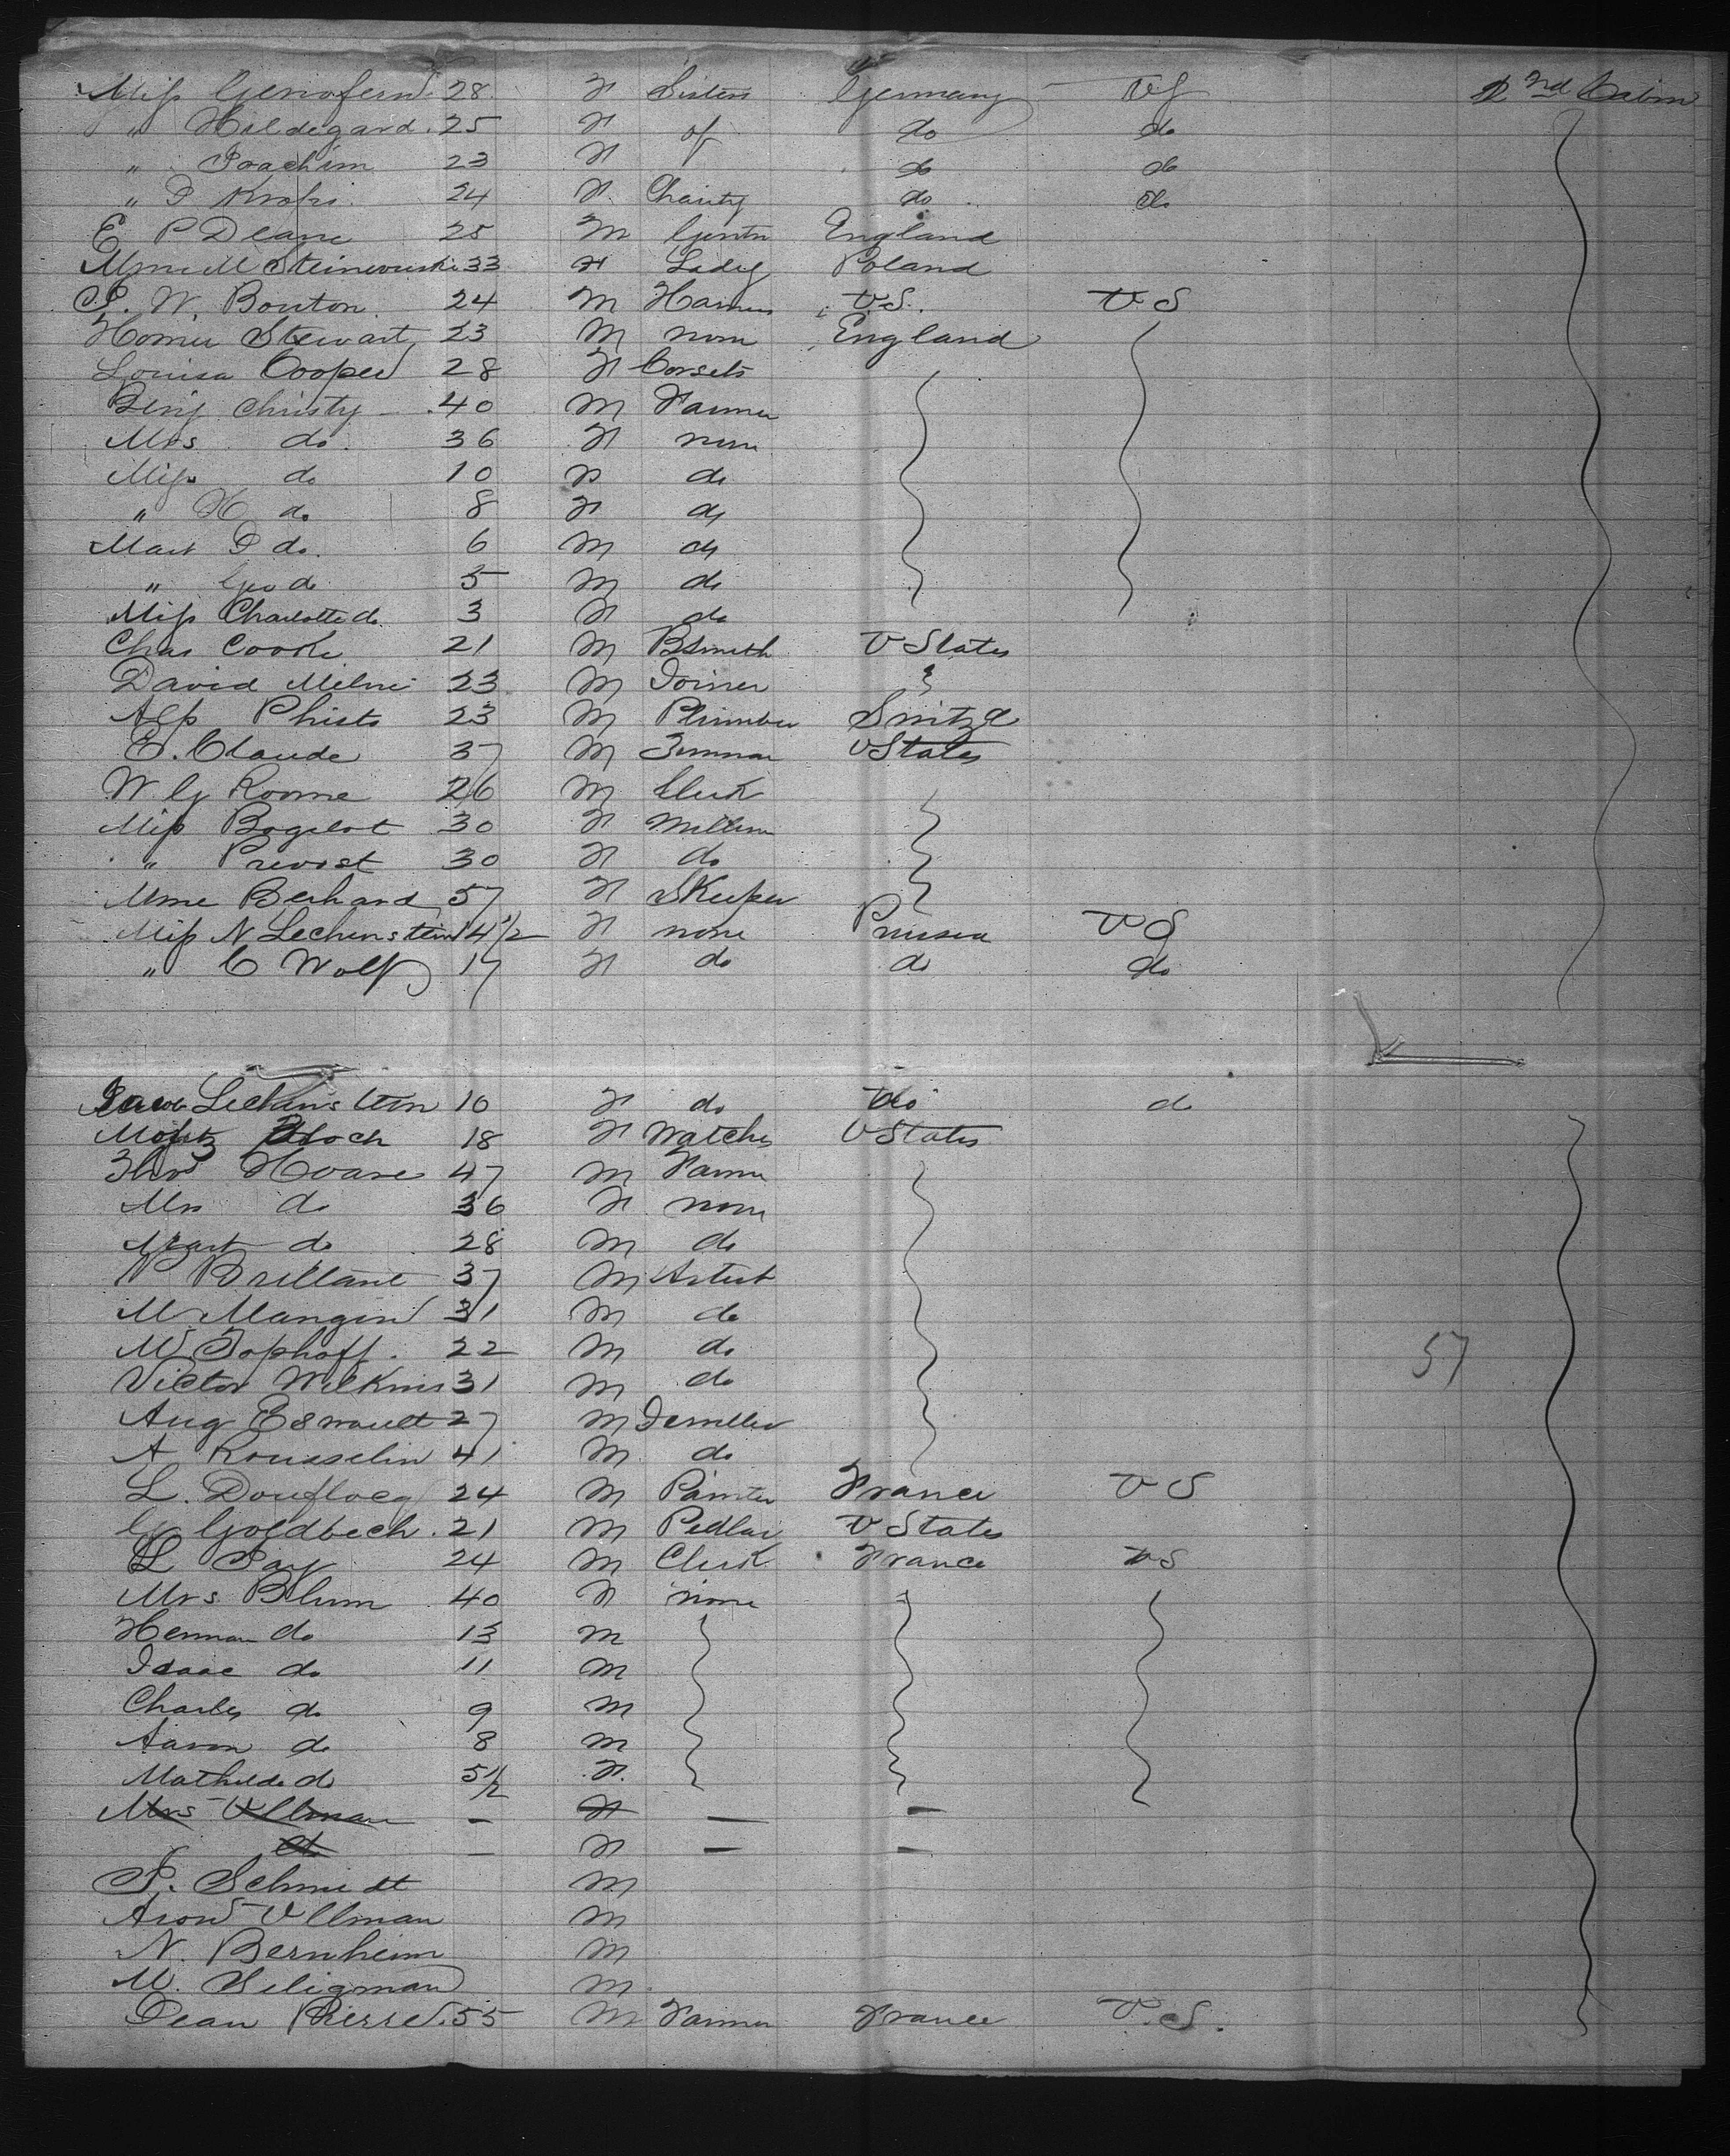 Miss Genofern 28 F Sisters Germany US 2nd Cabin
" Hildegard 25 F of do do
" Joachim 23 F do do
" P 24 F Charity do do
E P Deane 25 M Gentn England
Mme M 33 F Lady Poland
P. W. Bouton 24 M Harnes U.S. U S
Homer Stewart 23 M none England
Louisa Cooper 28 F Corsets
Benj Christy 40 M Farmer
Mrs do 36 F none
Miss do 10 F do
" H do 8 F do
Mast P do 6 M do
" Geo do 5 M do
Miss Charlotte do 3 F do
Chas Cooke 21 M BSmith U States
David Milne 23 M Joiner
Alp Phists 23 M Plumber Switzd
E. Claude 37 M U States
W G Roome 26 M Clerk
Miss Bogelot 30 F Milliner
" Prevost 30 F do
Mme Berhard 57 F SKeeper
Miss N Lechenstein 4 1/2 F none Prussia U S
" C Wolf 17 F do do do
Jacob Lechinstein 10 F do do do
Moritz Bloch 18 F Watches U States
Thos Hoare 47 M Farmer
Mrs do 36 F none
Mast do 28 M do
P Brillant 37 M Artist
M. Mangin 31 M do
M. Tophoff 22 M do 57
Victor Wilkins 31 M do
Aug Esnault 27 M Jeweller
A Rousselin 41 M do
L. Douflocq 24 M Painter France U S
G Goldbech 21 M Pedlar U States
L Pay 24 M Clerk France U S
Mrs Blum 40 F none
Herman do 13 M
Isaac do 11 M
Charles do 9 M
Aaron do 8 M
Mathilde do 5 1/2 F
Mrs Ullman - F - -
do - F - -
P. Schmidt M
Aron Ullman M
N. Bernheim M
M. Seligman M
Jean Pierre 55 M Farmer France U.S.